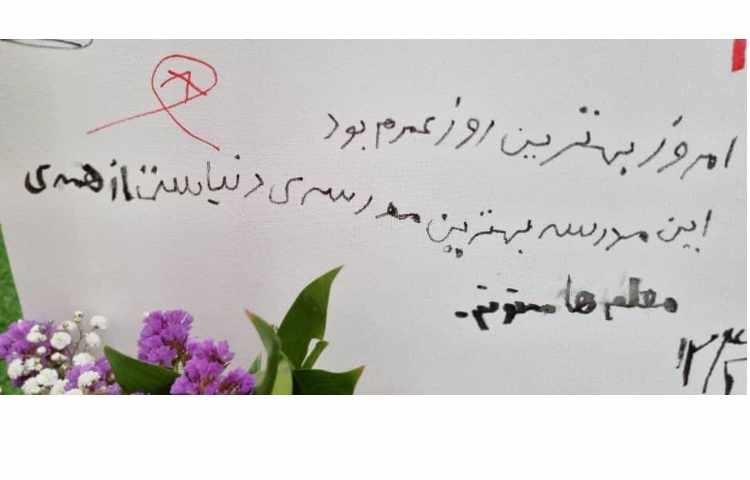 امروز بهترین روز عمرم بود
این مدرسه بهترین مدرسه‌ی دنیاست از همه‌ی
معلم ها ممنونم.